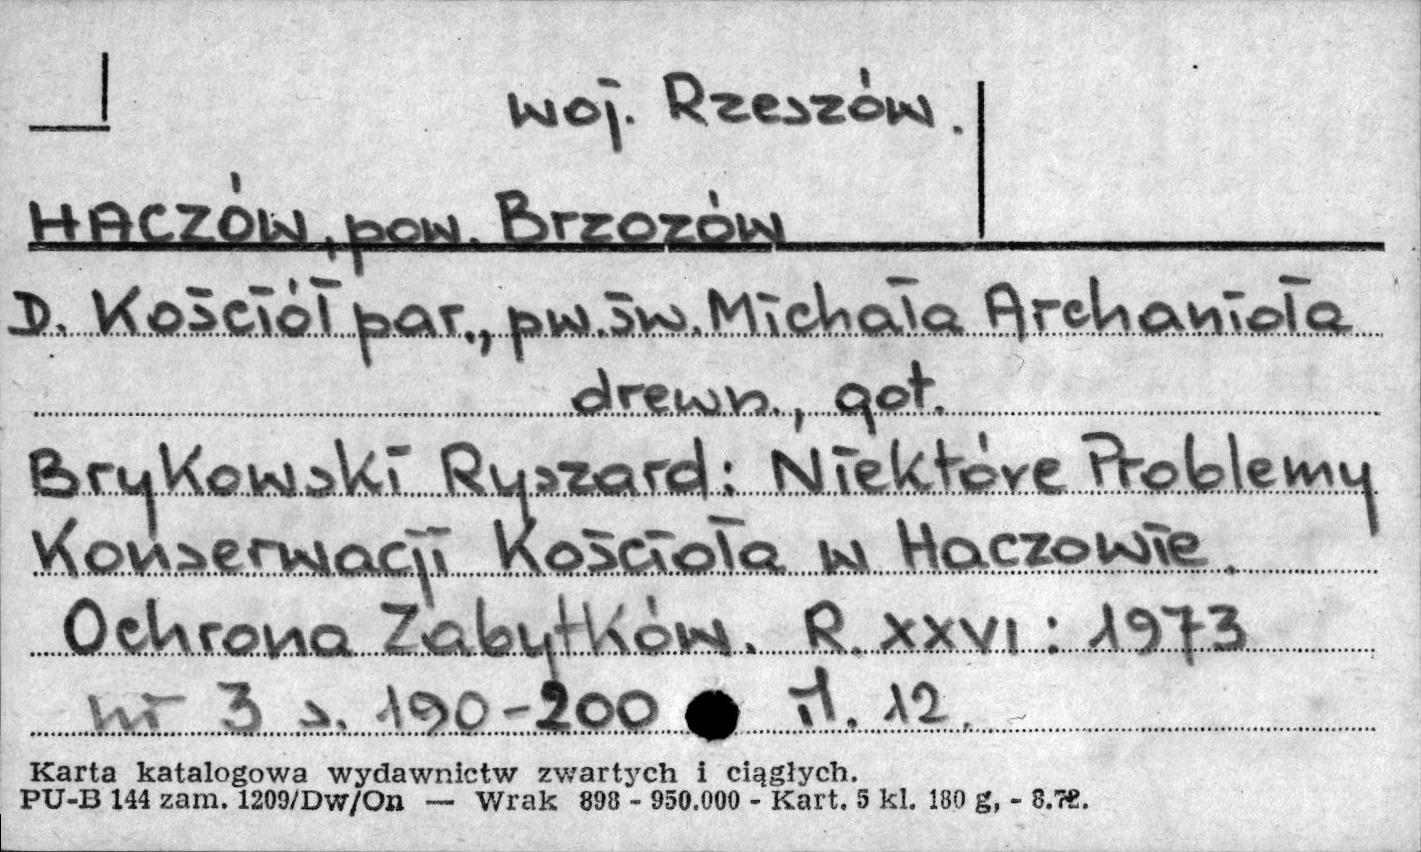 woj. Rzeszów.
HACZÓW, pow. Brzozów
D. Kościół par., pw. św. Michała Archanioła
drewn., got.
Brykowski Ryszard: Niektóre Problemy
Konserwacji Kościoła w Haczowie.
Ochrona Zabytków. R. XXVI: 1973
nr 3 s. 190-200 il. 12.
Karta katalogowa wydawnictw zwartych i ciągłych.
PU-B 144 zam. 1209/Dw/On — Wrak 898 - 950.000 - Kart. 5 kl. 180 g, - 8.72.